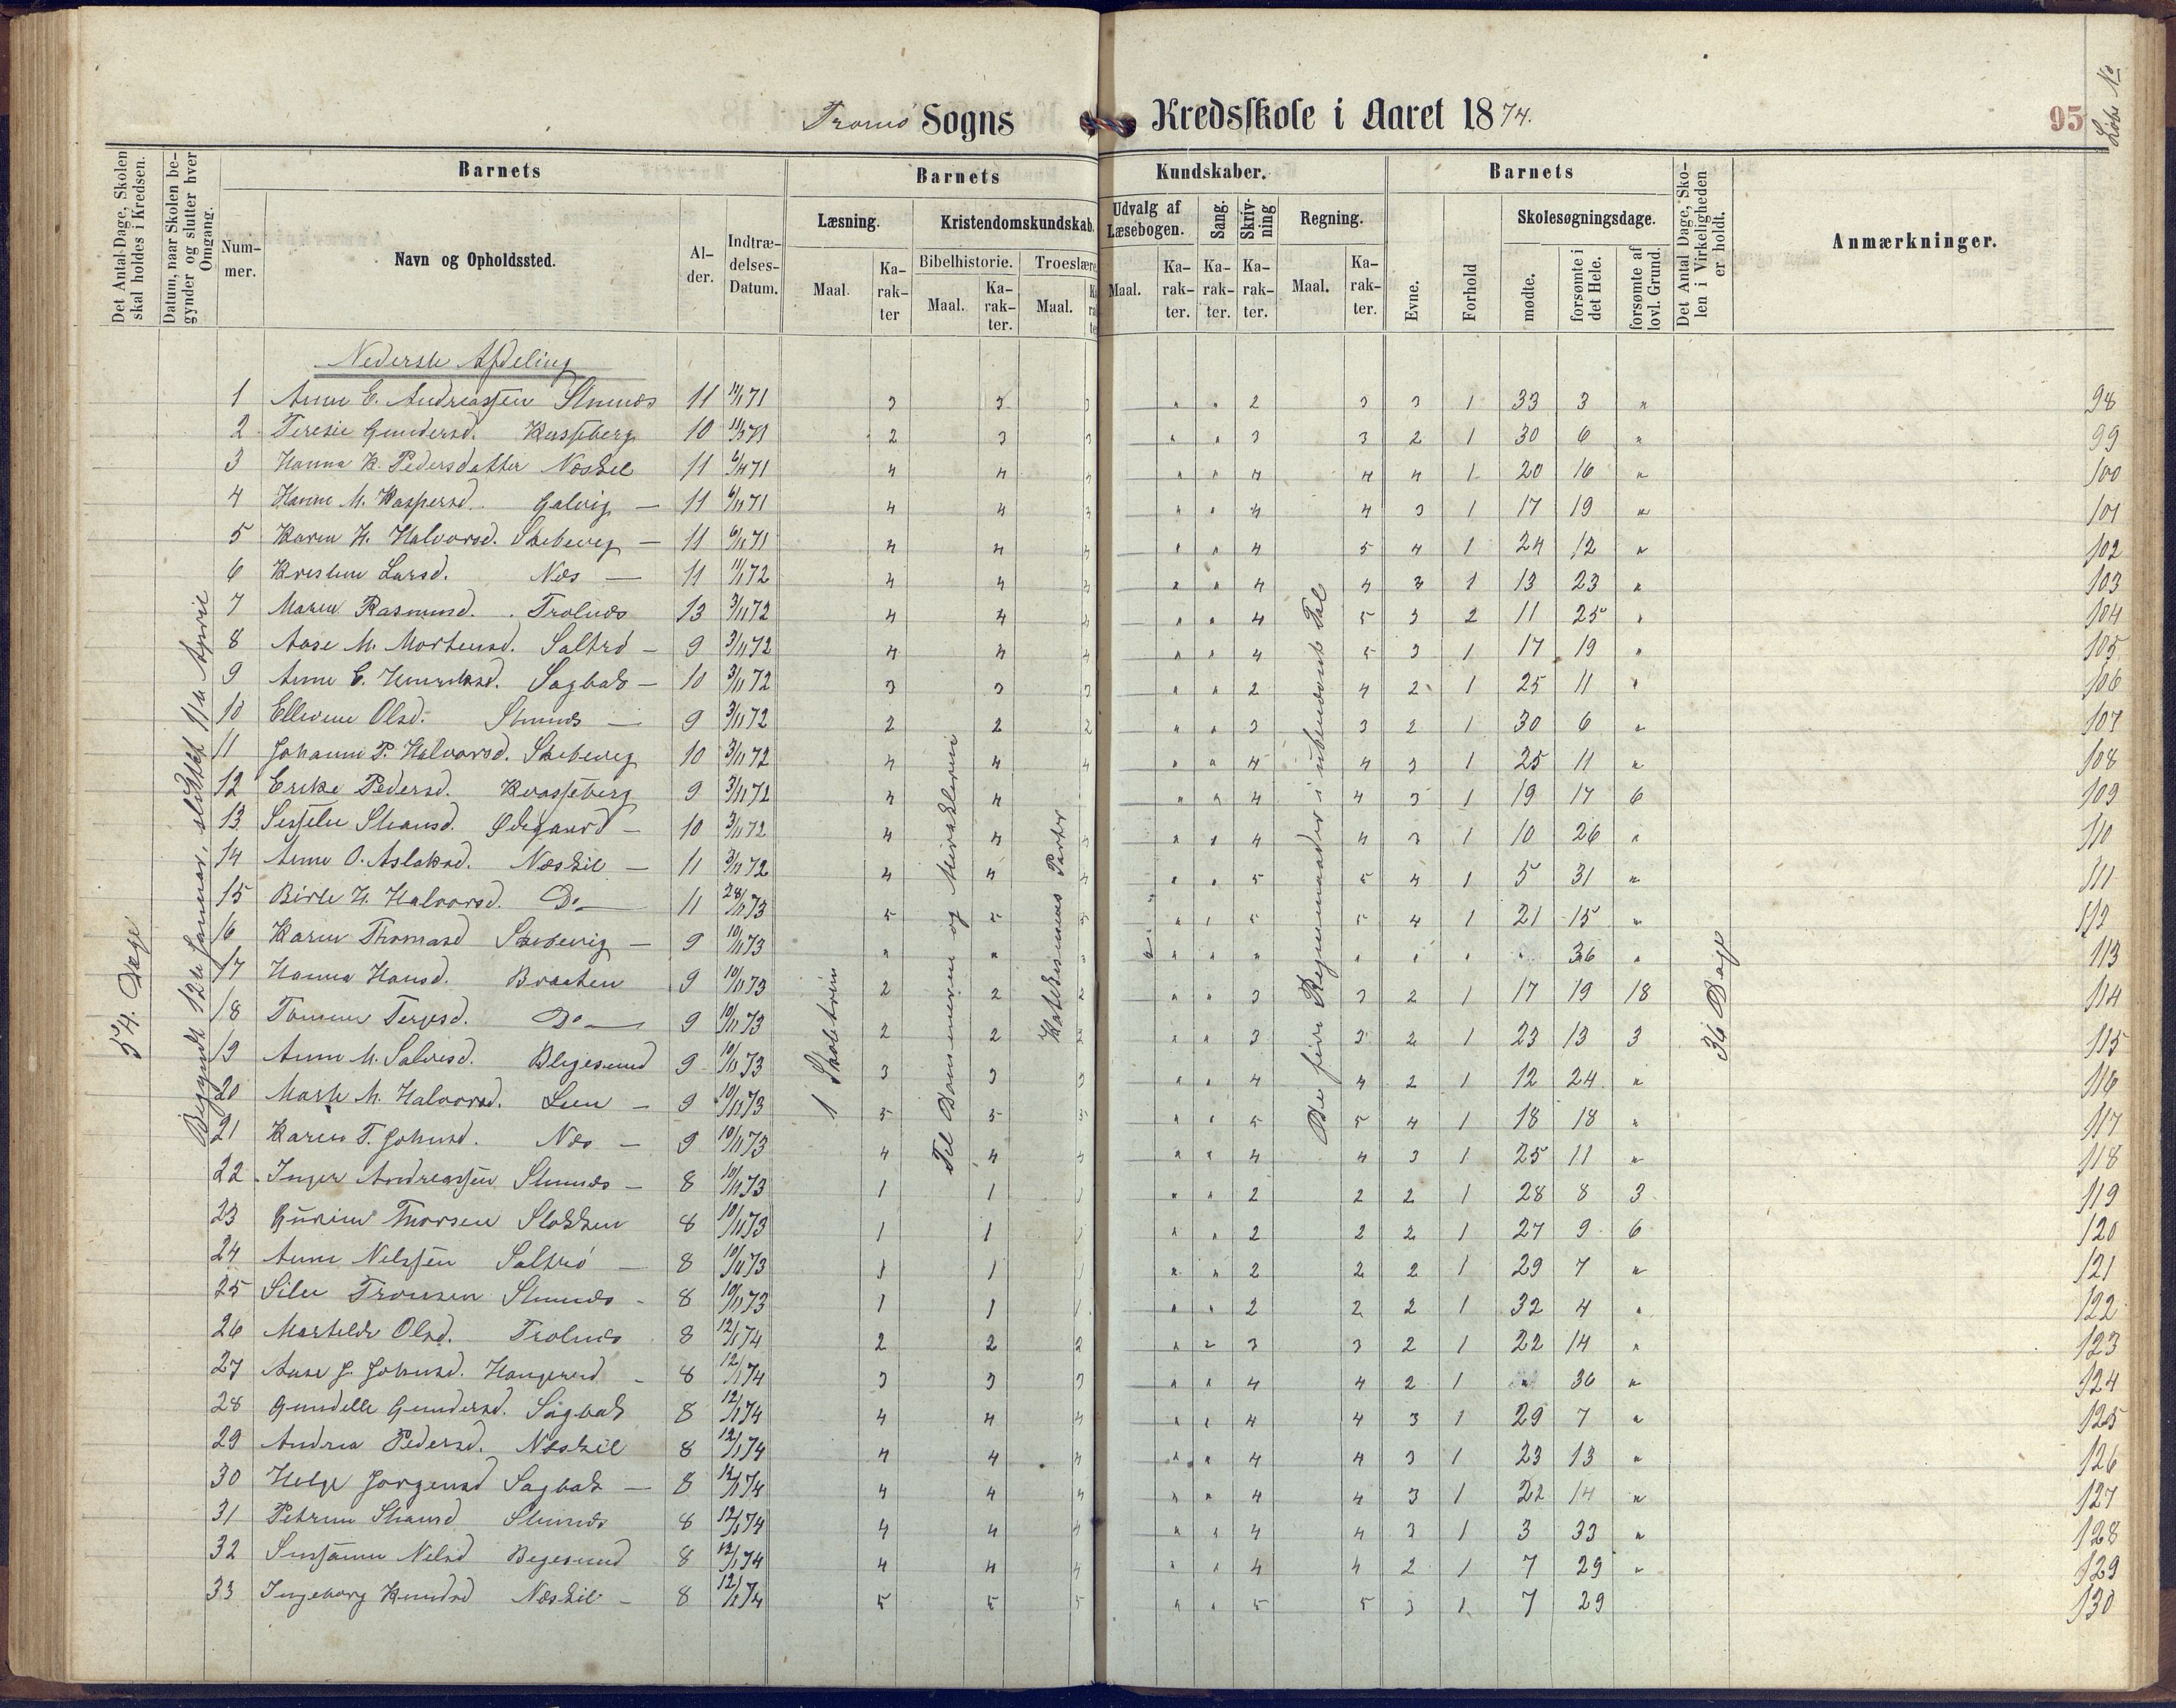 Tromø Sogns Kredsskole i Aaret 1874.
95
Løbe No
Det Antal Dage, Skolen skal holdes i Kredsen.
Datum, naar Skolen begynder og slutter hver Omgang.
Barnets
Nummer.
Navn og Opholdssted.
Alder.
Indtrædelses-Datum.
Barnets Kundskaber.
Læsning.
Maal.
Karakter
Kristendomskundskab.
Bibelhistorie.
Maal.
Karakter.
Troeslære
Maal.
Udvalg af Læsebogen.
Maal.
Karakter.
Sang.
Karakter.
Skrivning
Karakter.
Regning.
Maal.
Karakter.
Barnets
Evne.
Forhold
Skolesøgningsdage.
mødte.
forsømte i det Hele.
forsømte af lovl. Grund.
Det Antal Dage, Skolen i Virkeligheden er holdt.
Anmærkninger.
54. Dage
Begyndt 12te Januar, sluttet 11te April
1 Skoletrin
Til Dommeren og Miraklerne
Katekismens Parter
De fire Regnemaader i ubenævnte Tal
36 Dage
Nederste Afdeling
1 Anne E. Andreassen Stuenæs 11 11/1 71 3 3 3 " " 2 3 3 1 33 3 " 98
2 Teresie Gundersd. Kasseberg 10 11/3 71 2 3 3 " " 3 3 2 1 30 6 " 99
3 Hanna K. Pedersdatter Næskil 11 6/11 71 4 4 4 " " 4 4 4 1 20 16 " 100
4 Hanne M. Kaspersd. Galvig — 11 6/11 71 4 4 3 " " 4 4 3 1 17 19 " 101
5 Karen H. Halvorsd. Skibevig — 11 6/11 71 4 4 4 " " 4 5 4 1 24 12 " 102
6 Kristine Larsd. Næs — 11 11/1 72 4 4 4 " " 4 4 3 1 13 23 " 103
7 Maren Rasmusd. Trolnæs 13 3/11 72 4 4 4 " " 4 5 3 2 11 25 " 104
8 Aase M. Mortensd. Saltrø — 9 3/11 72 4 4 4 " " 4 5 3 1 17 19 " 105
9 Anne E. Henriksd. Sagbak — 10 3/11 72 3 3 3 " " 2 4 2 1 25 11 " 106
10 Ellevine Olsd. Stuenæs — 9 3/11 72 2 2 2 " " 3 3 2 1 30 6 " 107
11 Johanne P. Halvorsd. Skibevig 10 3/11 72 4 4 4 " " 4 4 3 1 25 11 " 108
12 Erike Pedersd. Kvasseberg 9 3/11 72 4 4 " " 4 4 3 1 19 17 6 109
13 Sissele Stiansd. Ødegaard — 10 3/11 72 4 4 " " 4 4 3 1 10 26 " 110
14 Anne O. Aslaksd. Næskil — 11 3/11 72 4 4 4 " " 5 5 4 1 5 31 " 111
15 Birte H. Halvorsd. Do — 11 28/1 73 5 5 5 " " 5 5 4 1 21 15 " 112
16 Karen Thomasd Skibevig — 9 10/11 73 " " " " " " " " " " 36 " 113
17 Hanna Hansd. Braaten 9 10/11 73 2 2 2 " " 3 3 2 1 17 19 18 114
18 Tomine Terjesd. Do — 9 10/11 73 2 2 2 " " 3 3 2 1 23 13 3 115
19 Anne M. Salvesd. Blegesund 9 10/11 73 3 3 3 " " 4 4 2 1 12 24 " 116
20 Marte M. Halvorsd. Lien — 9 10/11 73 5 5 5 " " 5 5 4 1 18 18 " 117
21 Karen T. Johnsd. Næs — 9 10/11 73 4 4 4 " " 4 4 3 1 25 11 " 118
22 Inger Andreassen Stuenæs — 8 10/11 73 1 1 1 " " 2 2 2 1 28 8 3 119
23 Gurine Thorsen Stokken 8 10/11 73 1 1 1 " " 2 2 2 1 27 9 6 120
24 Anne Nelssen Saltrø — 8 10/11 73 1 1 1 " " 2 2 2 1 29 7 " 121
25 Silie Tronsen Stuenæs - 8 10/11 73 1 1 1 " " 2 2 2 1 32 4 " 122
26 Mathilde Olsd. Trolnæs 8 12/1 74 2 2 2 " " 3 3 2 1 22 14 " 123
27 Aase J. Johnsd. Hangerud - 8 12/1 74 3 3 3 " " 4 4 2 1 " 36 " 124
28 Gundelle Gundersd. Sagbak 8 12/1 74 4 4 4 " " 4 4 3 1 29 7 " 125
29 Andrea Pedersd. Næskil 8 12/1 74 4 4 4 " " 4 4 3 1 23 13 " 126
30 Helge Jorgensd Sagbak — 8 12/1 74 4 4 4 " " 4 4 3 1 22 14 " 127
31 Petrine Stiansd Stuenæs 8 12/1 74 4 4 4 " " 4 4 3 1 3 33 " 128
32 Sussanne Nelsd Begesund 8 12/1 74 4 4 4 " " 4 4 2 1 7 29 " 129
33 Ingeborg Knudsd Næskil - 8 12/1 74 5 5 5 " " 5 5 3 1 7 29 130